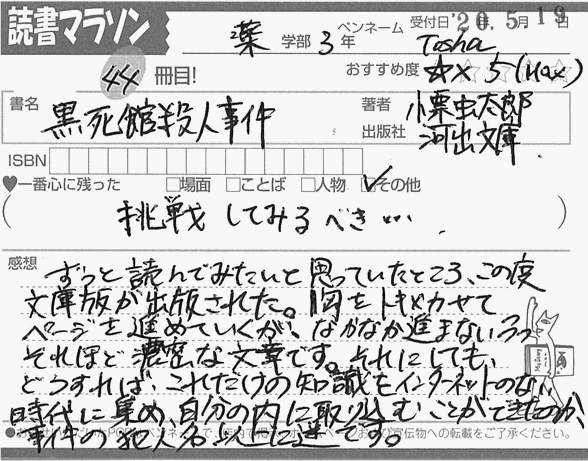 読書マラソン
ペンネーム 受付日 '20年 5月 19日
薬 学部 3年 Tosha
44 冊目! おすすめ度 ☆× 5 (Max)
書名 黒死館殺人事件 著者 小栗虫太郎
出版社 河出文庫
ISBN
♥一番心に残った □場面 □ことば □人物 ☑その他
( 挑戦してみるべき… )
感想
ずっと読んでみたいと思っていたところ、この度
文庫版が出版された。胸をトキメカせて
ページを進めていくが、なかなか進まない
それほど濃密な文章です。それにしても、
どうすれば、これだけの知識をインターネットのない
時代に集め、自分の内に取り込むことができたのか
事件の犯人名以上に謎です。
および宣伝物への転載をご了承ください。